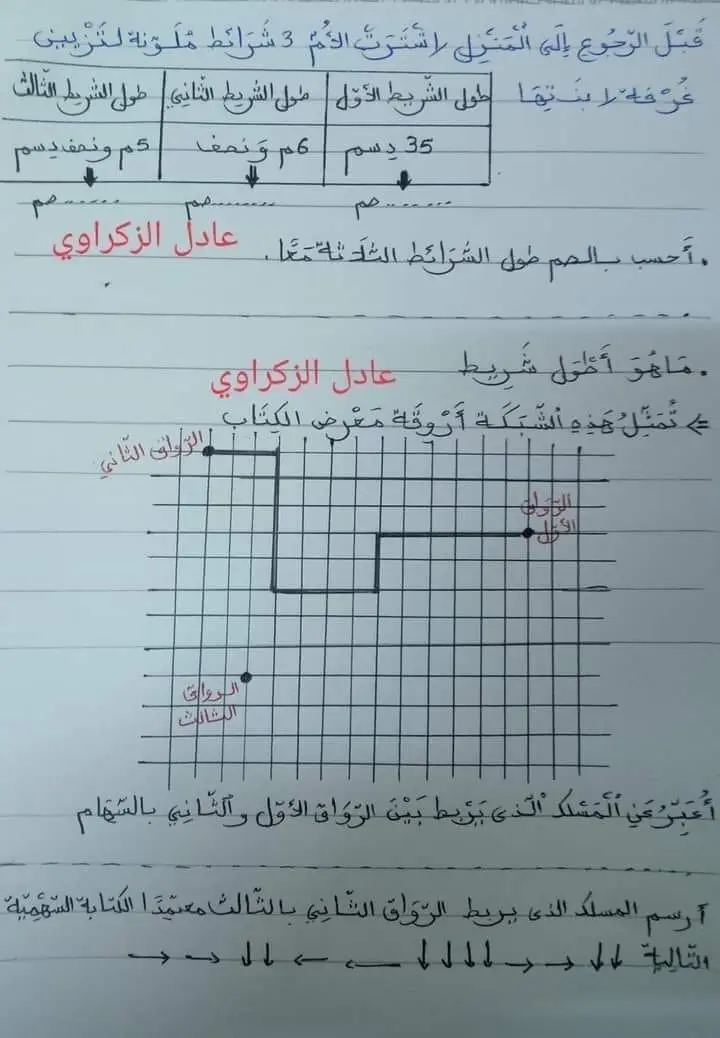 قَبْلَ الرُّجُوعِ إِلَى الْمَنْزِلِ اشْتَرَتْ الأُمُّ 3 شَرَائط مُلَوَّنة لتَزْيين
غُرْفة ابنَتِهَا
طول الشّريط الأوّل
طول الشريط الثّاني
طول الشريط الثّالث
35 دسم
6م وَنصف
5م ونصف دسم
........صم
........صم
........صم
عادل الزكراوي
. أَحسب بالصم طول الشّرَائط الثّلَاثة مَعًا.
. مَا هُوَ أَطْوَل شَرِيط
عادل الزكراوي
⇐ تُمَثِّلُ هَذِهِ الشَّبَكَة أَرْوِقَة مَعْرِض الكِتَاب
الرّواق الثّاني
الرّواق
الأوّل
الرواق
الثالث
أُعَبِّرُ عَنِ الْمَسْلك الّذي يَرْبِط بَيْنَ الرّوَاق الأوّل والثّاني بالسّهَام
أرسم المسلك الذي يربط الرّواق الثّاني بالثّالث معتمِدًا الكتابة السّهْمِيّة
التّالِية ↓↓→→↓↓↓↓←←↓↓→→